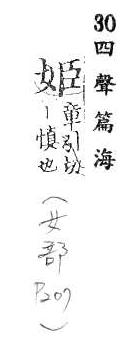 30 四聲篇海
姫
章引切
丨慎也
(女部 P207)